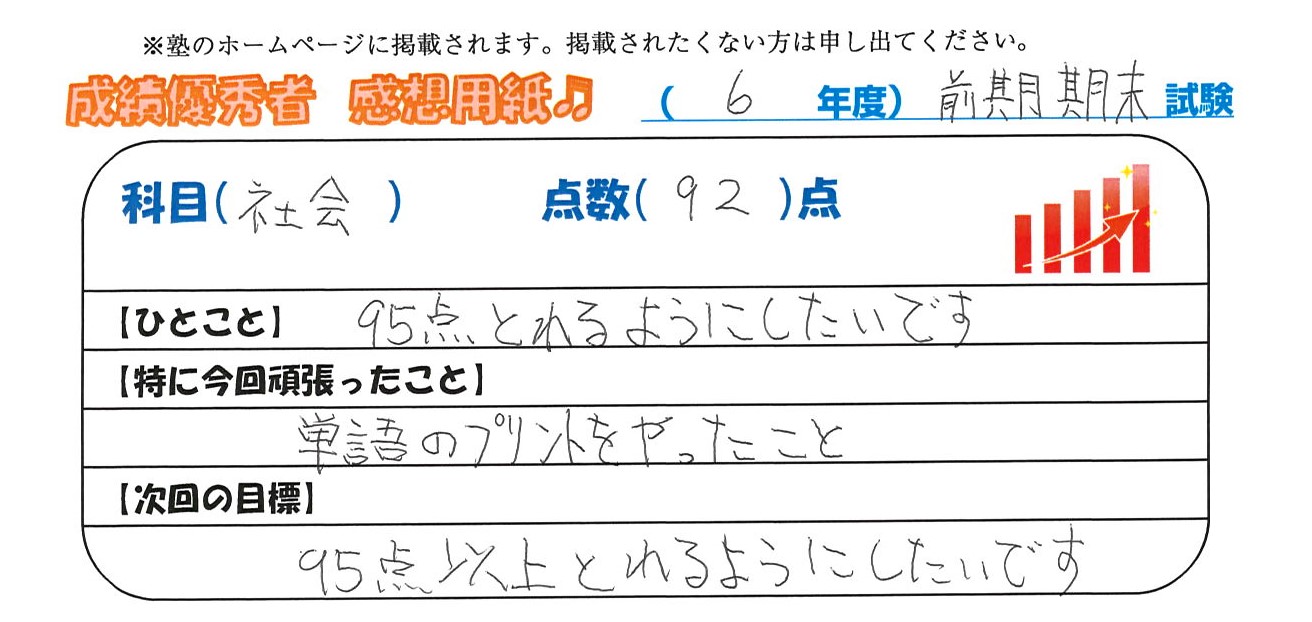 ※塾のホームページに掲載されます。掲載されたくない方は申し出てください。
成績優秀者 感想用紙♫ ( 6 年度) 前期期末 試験
科目( 社会 ) 点数( 92 )点
【ひとこと】 95点とれるようにしたいです
【特に今回頑張ったこと】
単語のプリントをやったこと
【次回の目標】
95点以上とれるようにしたいです